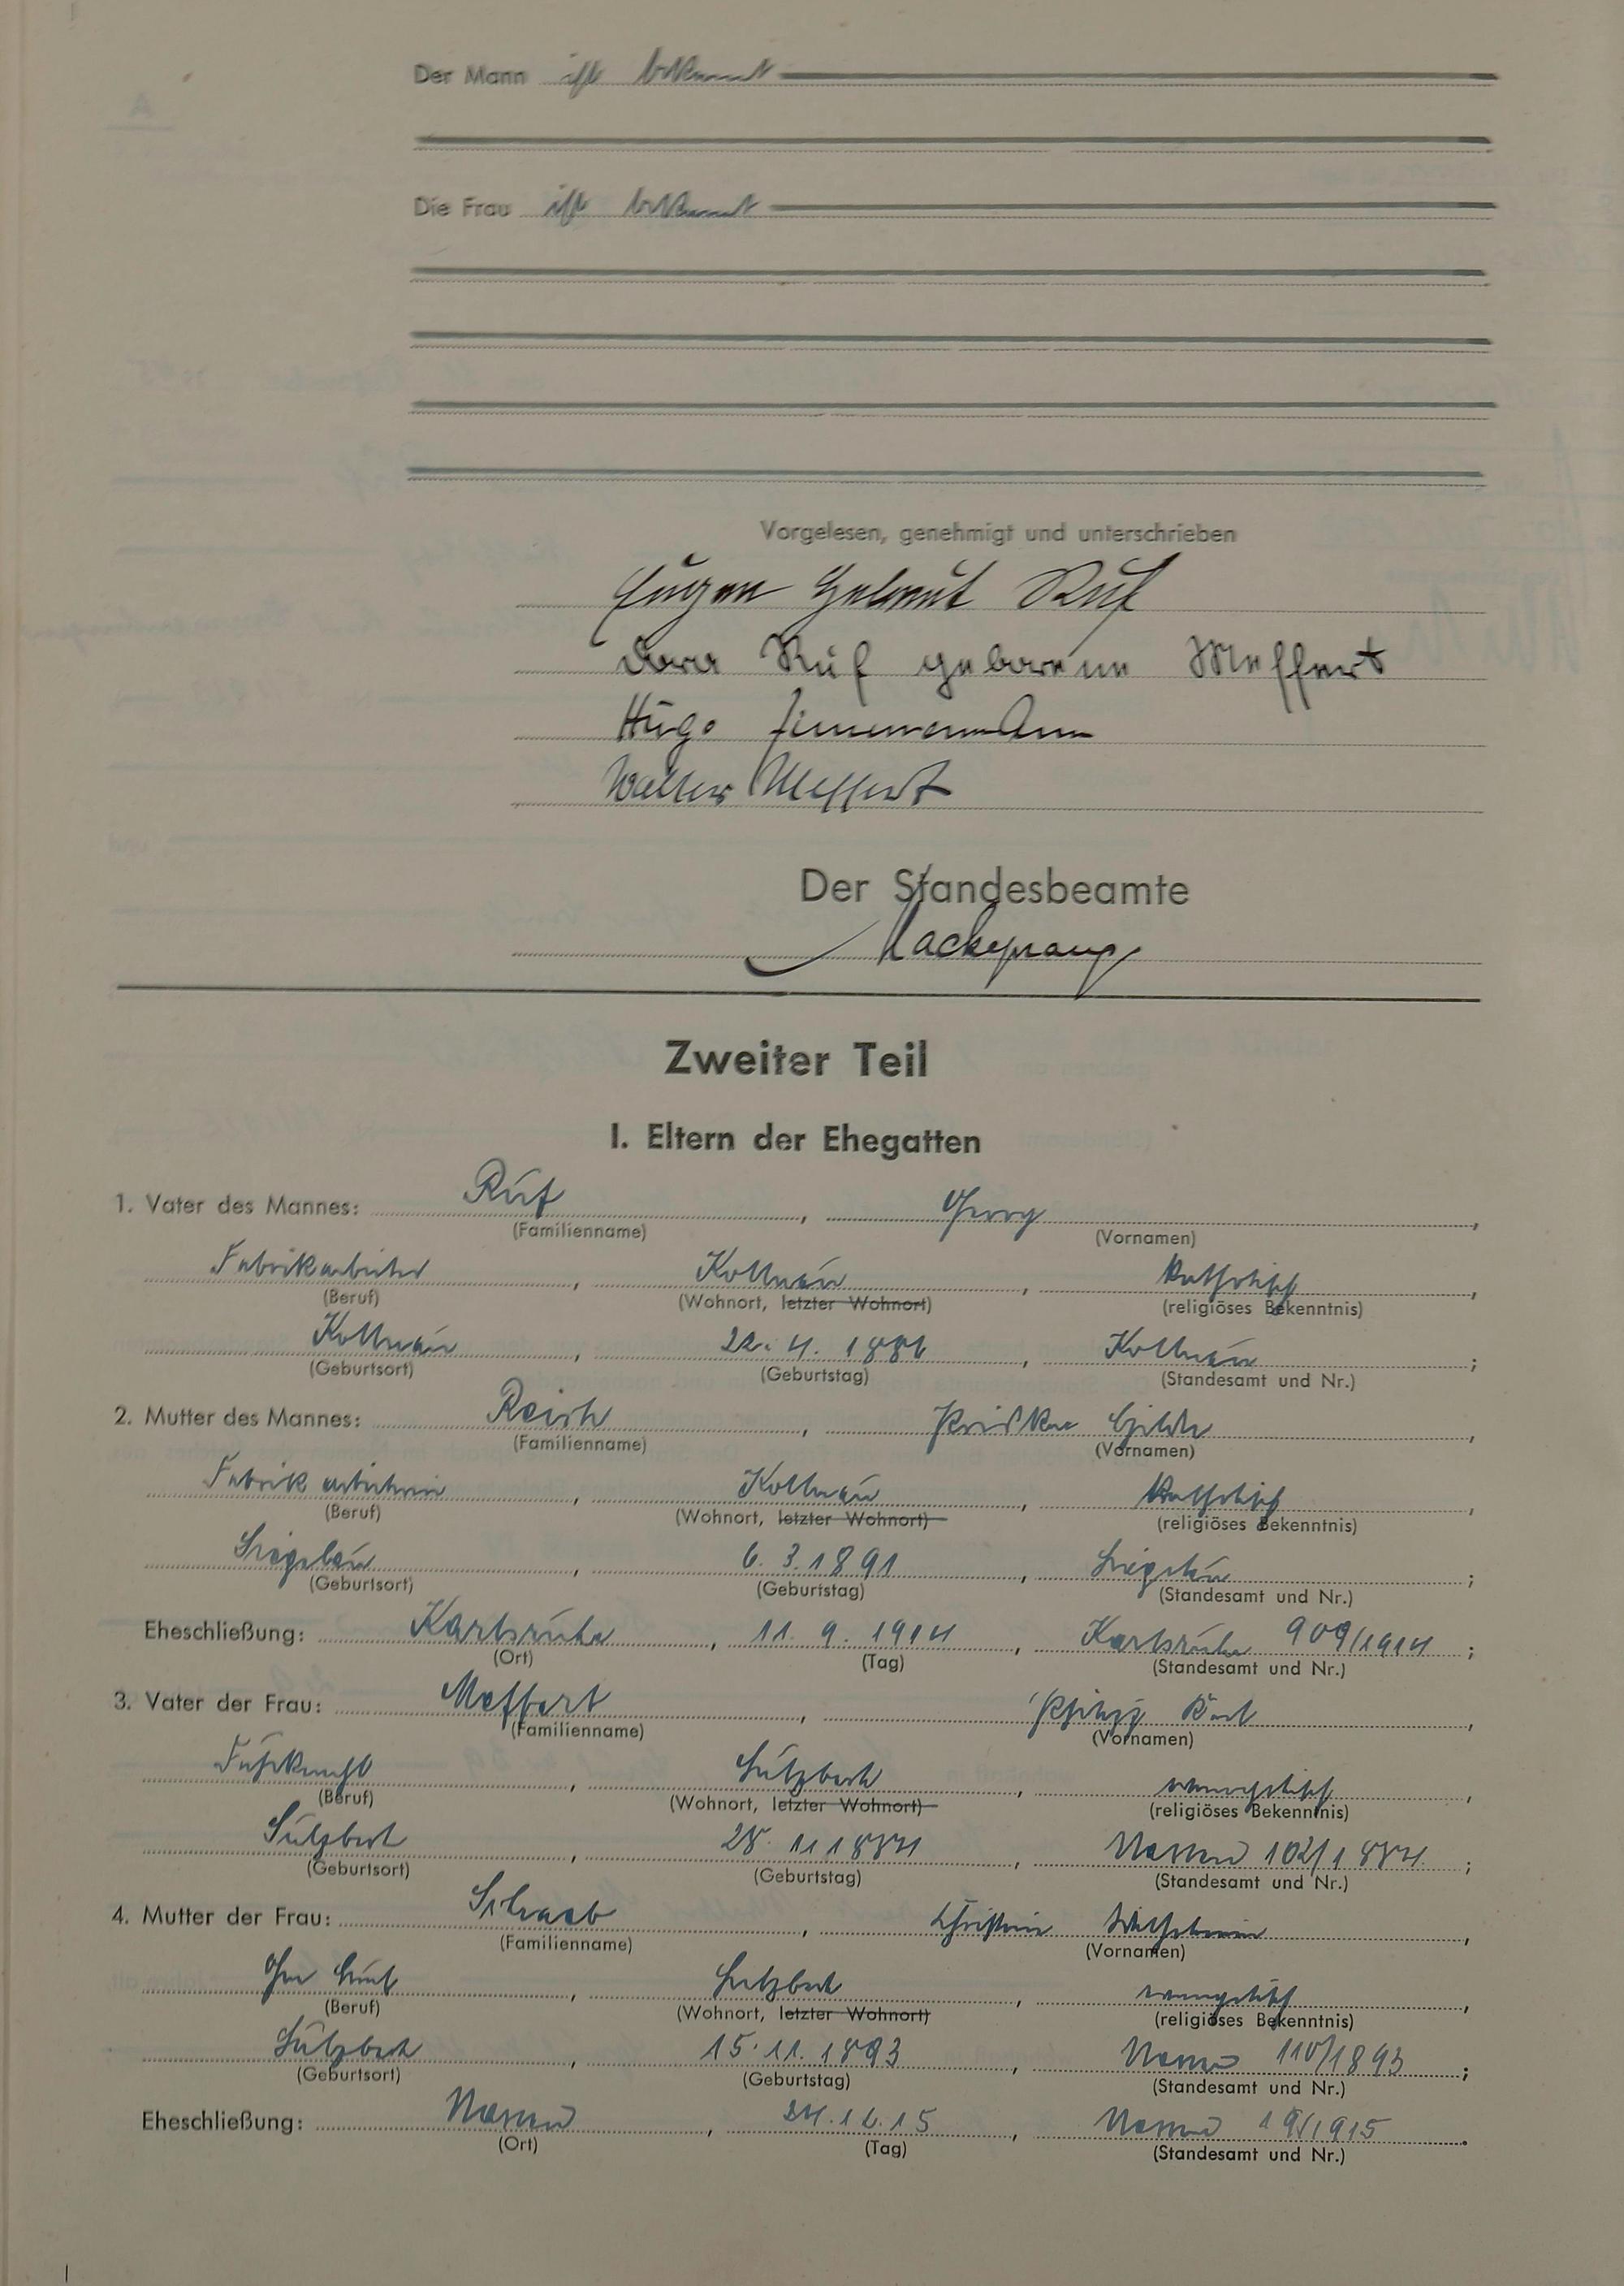 Der Mann ist bekannt
Die Frau ist bekannt
Vorgelesen, genehmigt und unterschrieben
Eugen Helmut Ruf
Dora Ruf geborene Meffert
Hugo Zimmermann
Walter Meffert
Der Standesbeamte
Mackeprang
Zweiter Teil
I. Eltern der Ehegatten
1. Vater des Mannes: Ruf, Georg,
(Familienname) (Vornamen)
Fabrikarbeiter, Kollnau, katholisch,
(Beruf) (Wohnort, letzter Wohnort) (religiöses Bekenntnis)
Kollnau, 22. 4. 1886, Kollnau;
(Geburtsort) (Geburtstag) (Standesamt und Nr.)
2. Mutter des Mannes: Reich,
(Familienname) (Vornamen)
Fabrikarbeiterin, Kollnau, katholisch,
(Beruf) (Wohnort, letzter Wohnort) (religiöses Bekenntnis)
Siegelau, 6. 3. 1891, Siegelau;
(Geburtsort) (Geburtstag) (Standesamt und Nr.)
Eheschließung: Karlsruhe, 11. 9. 1914, Karlsruhe 909/1914;
(Ort) (Tag) (Standesamt und Nr.)
3. Vater der Frau: Meffert, Philipp Karl,
(Familienname) (Vornamen)
Sulzbach, evangelisch,
(Beruf) (Wohnort, letzter Wohnort) (religiöses Bekenntnis)
Sulzbach,
(Geburtsort) (Geburtstag) (Standesamt und Nr.)
4. Mutter der Frau: Schaab, Christine Wilhelmine,
(Familienname) (Vornamen)
Sulzbach, evangelisch,
(Beruf) (Wohnort, letzter Wohnort) (religiöses Bekenntnis)
Sulzbach, 15. 11. 1893, Nassau 110/1893;
(Geburtsort) (Geburtstag) (Standesamt und Nr.)
Eheschließung: Nassau, Nassau 19/1915.
(Ort) (Tag) (Standesamt und Nr.)